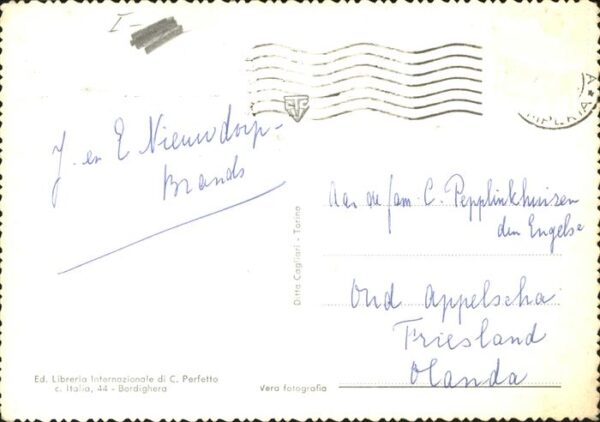 I-
IMPERIA
J. en E Nieuwdorp-
Brands
Aan de fam. C. Pepplinkhuizen
den Engelse
Oud Appelscha
Friesland
Olanda
Ditta Cagliari - Torino
Ed. Libreria Internazionale di C. Perfetto
c. Italia, 44 - Bordighera
Vera fotografia